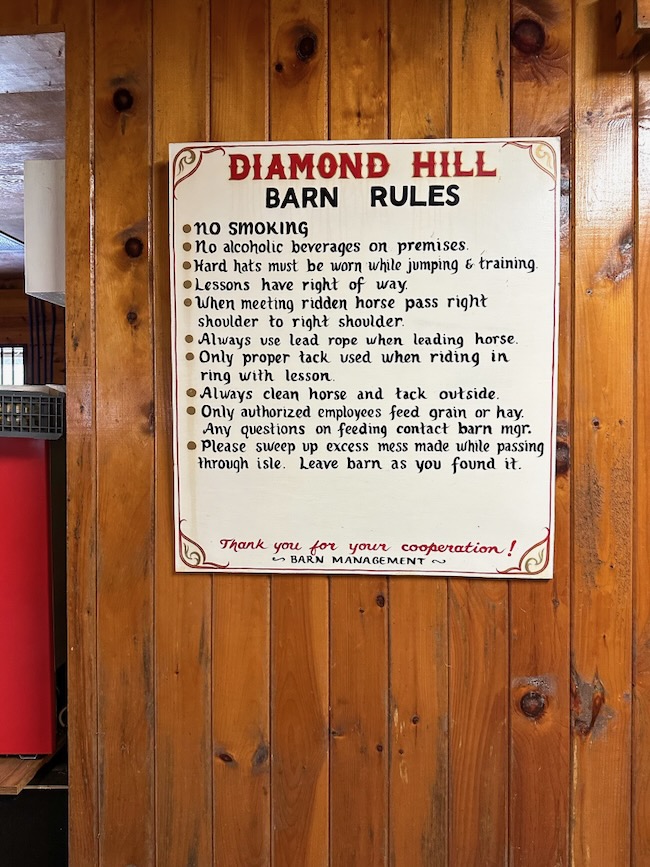 DIAMOND HILL
BARN RULES
• NO SMOKING
• No alcoholic beverages on premises.
• Hard hats must be worn while jumping & training.
• Lessons have right of way.
• When meeting ridden horse pass right
shoulder to right shoulder.
• Always use lead rope when leading horse.
• Only proper tack used when riding in
ring with lesson.
• Always clean horse and tack outside.
• Only authorized employees feed grain or hay.
Any questions on feeding contact barn mgr.
• Please sweep up excess mess made while passing
through isle. Leave barn as you found it.
Thank you for your cooperation!
~ BARN MANAGEMENT ~